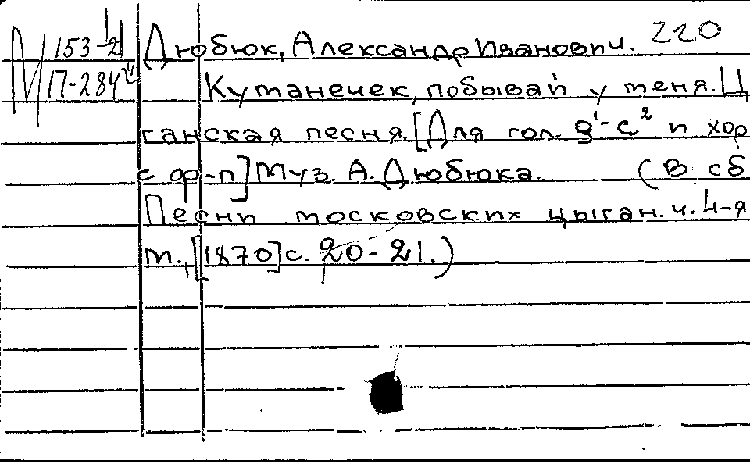 М 153-2 Дюбюк, Александр Иванович. 220
П-284 Куманечек, побывай у меня. Ц
ганская песня. [Для гол. g¹-c² и хор
с ф-п] Муз. А. Дюбюка. (В сб
Песни московских цыган. ч. 4-я
М., [1870] с. 20-21.)